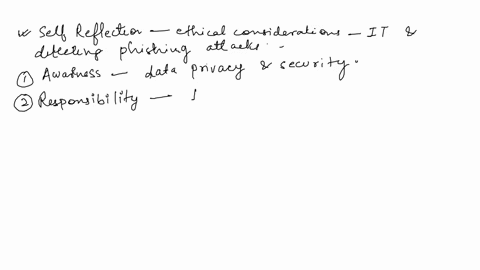 Self Reflection — ethical considerations — IT &
detecting phishing attacks.
① Awarness — data privacy & security.
② Responsibility —